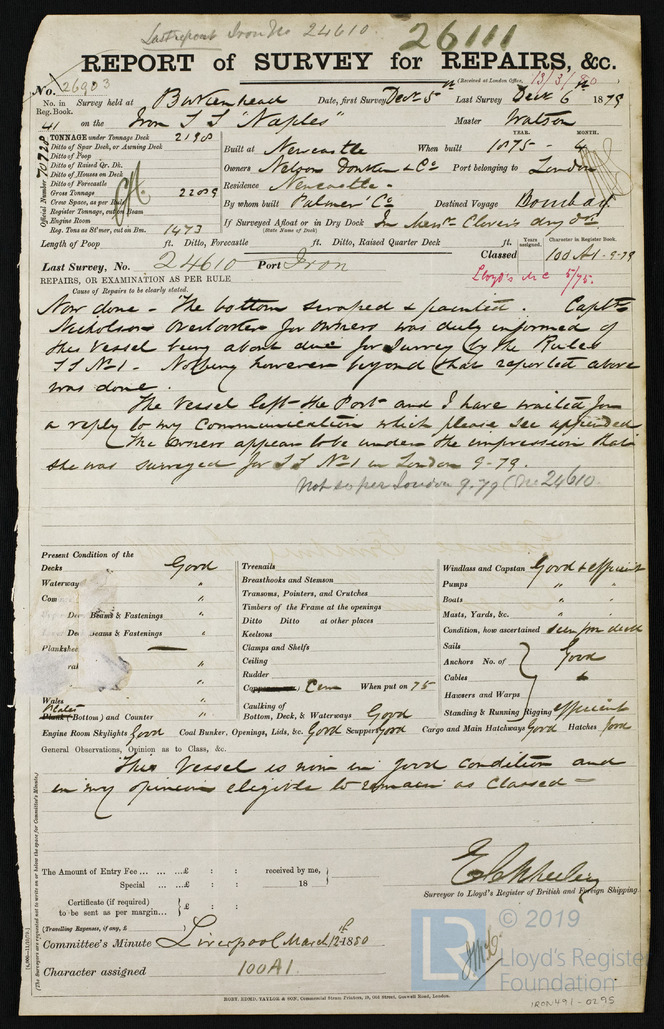 Last report Iron No 24610
26111
REPORT of SURVEY for REPAIRS, &c.
(Received at London Office, 13/3/80)
No. 26903
No. in Reg. Book. Survey held at Birkenhead Date, first Survey Decr 5th Last Survey Decr 6th 1879
41 on the Iron S S "Naples" Master Watson
TONNAGE under Tonnage Deck 2198
Ditto of Spar Deck, or Awning Deck
Ditto of Poop
Ditto of Raised Qr. Dk.
Ditto of Houses on Deck
Ditto of Forecastle
Gross Tonnage 2209
Crew Space, as per Rule
Register Tonnage, cut on Beam
Engine Room
Reg. Tons as St'mer, cut on Bm. 1473
Official Number 70728
YEAR. MONTH.
Built at Newcastle When built 1875 - 4
Owners Nelson Donkin & Co Port belonging to London
Residence Newcastle -
By whom built Palmer Co Destined Voyage Bombay
If Surveyed Afloat or in Dry Dock In Messrs Clover's dry dk
(State Name of Dock)
Length of Poop ft. Ditto, Forecastle ft. Ditto, Raised Quarter Deck ft.
Years assigned. Character in Register Book.
Classed 100A1-9-79
Last Survey, No. 24610 Port Iron
Lloyd's M C 5/75.
REPAIRS, OR EXAMINATION AS PER RULE
Cause of Repairs to be clearly stated.
Now done - The bottom scraped & painted. Captn
Nicholson Overlooker for owners was duly informed of
this vessel being about due for Survey by the Rules
SS No 1 - Nothing however beyond that reported above
was done.
The vessel left the Port and I have waited for
a reply to my communication which please see appended
The owners appear to be under the impression that
she was surveyed for SS No 1 in London 9-79.
Not so per London 9.79 (No 24610.
Present Condition of the
Decks Good
Waterway "
"
Deck Beams & Fastenings "
Deck Beams & Fastenings "
Plankshee
"
"
Wales "
Plates
Plank (Bottom) and Counter "
Treenails
Breasthooks and Stemson
Transoms, Pointers, and Crutches
Timbers of the Frame at the openings
Ditto Ditto at other places
Keelsons
Clamps and Shelfs
Ceiling
Rudder
Cem When put on 75
Caulking of
Bottom, Deck, & Waterways Good
Windlass and Capstan Good & efficient
Pumps " "
Boats " "
Masts, Yards, &c. " "
Condition, how ascertained seen from deck
Sails
Anchors No. of Good
Cables "
Hawsers and Warps
Standing & Running Rigging efficient
Engine Room Skylights Good Coal Bunker, Openings, Lids, &c. Good Scuppers Good Cargo and Main Hatchways Good Hatches Good
General Observations, Opinion as to Class, &c.
This Vessel is now in good condition and
in my opinion eligible to remain as Classed -
The Amount of Entry Fee ... ... ...£ : : received by me,
Special ... ...£ : : 18
Certificate (if required)
to be sent as per margin... } £ : :
(Travelling Expenses, if any, £ )
Surveyor to Lloyd's Register of British and Foreign Shipping
Committee's Minute Liverpool March 12th 1880
Character assigned 100A1
(The Surveyors are requested not to write on or below the space for Committee's Minute.)
LR
© 2019
Lloyd's Register
Foundation
IRON491-0295